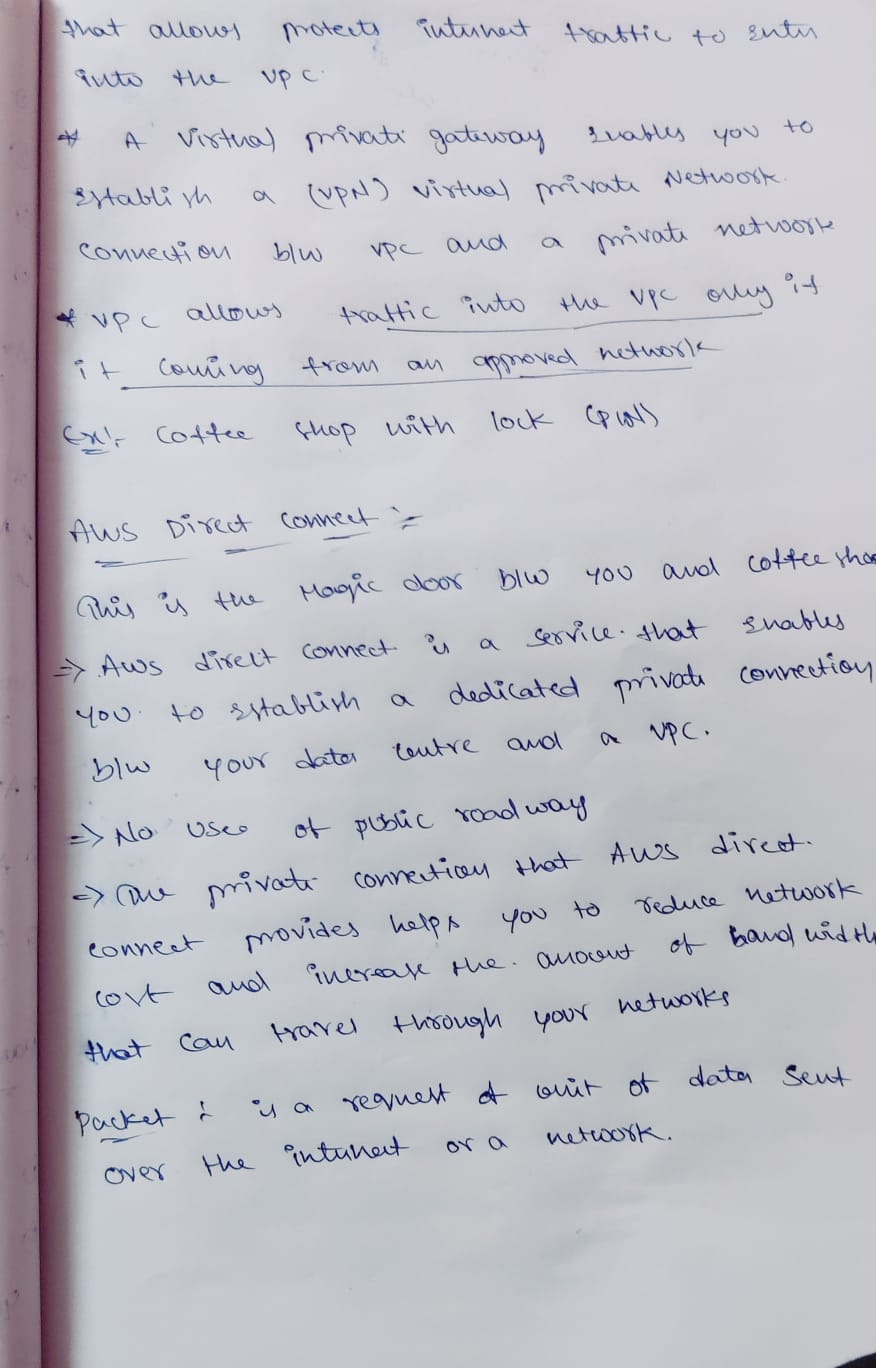 that allows protects internet traffic to enter
into the VPC.
* A Virtual private gateway enables you to
establish a (VPN) virtual private Network.
connection b/w VPC and a private network
* VPC allows traffic into the VPC only if
it coming from an approved network
Ex:- Coffee shop with lock (PIN)
AWS Direct Connect :-
This is the Magic door b/w you and coffee shop
=> AWS direct connect is a service. that enables
you. to establish a dedicated private connection
b/w your data centre and a VPC.
=> No uses of public roadway
=> The private connection that AWS direct.
connect provides helps you to reduce network
cost and increase the. amount of bandwidth
that can travel through your networks
Packet : is a request of unit of data sent
over the internet or a network.